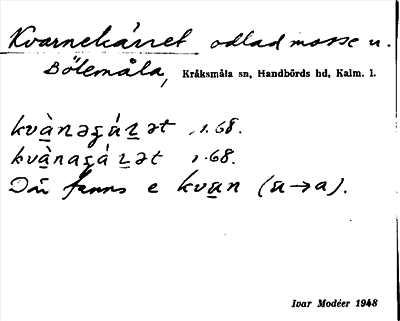 Kvarnekärret odlad mosse u.
Bölemåla, Kråksmåla sn, Handbörds hd, Kalm. l.
kvà̱nəʂá̱ʐət 1.68.
kvà̱naʂá̱ʐət 1.68.
Då fanns e kva̱n (ū→a).
Ivar Modéer 1948